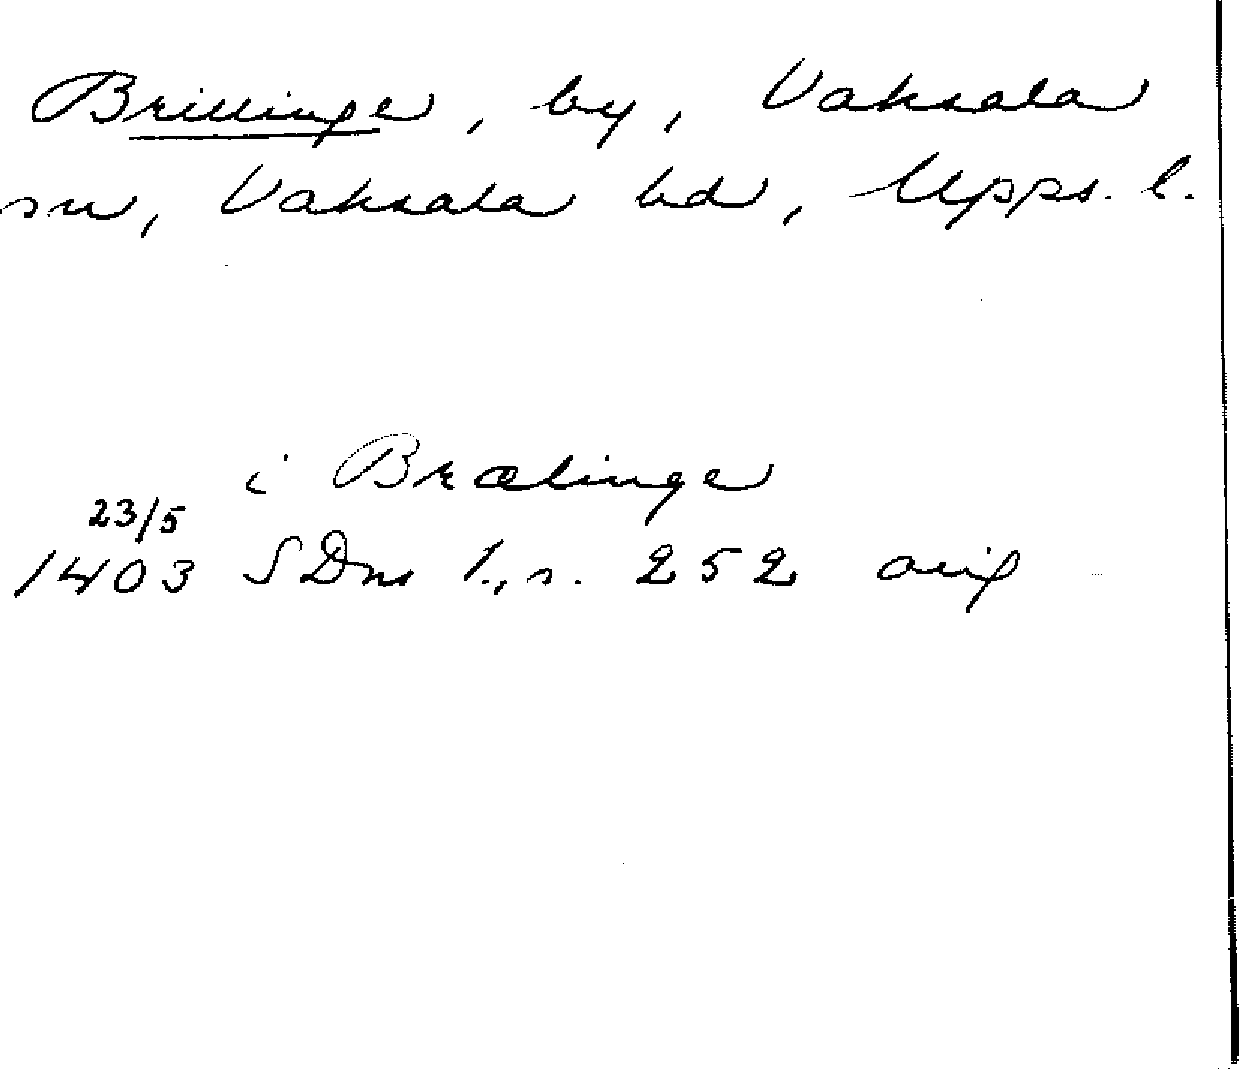 Brillinge, by, Vaksala
sn, Vaksala hd, Upps. l.
i Brælinge
23/5
1403 SDns 1, s. 252 orig